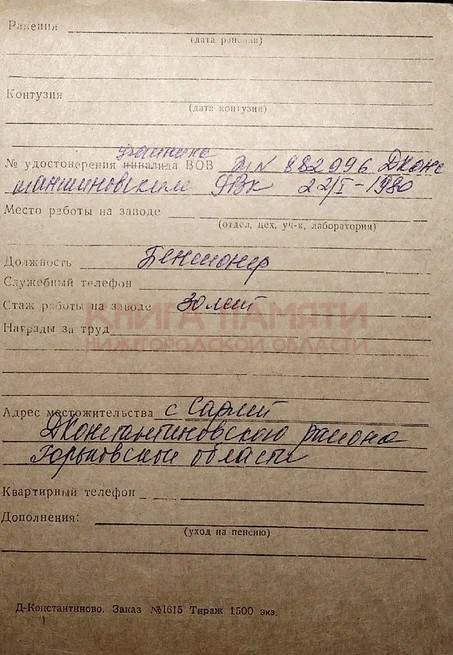 Ранения
(дата ранения)
Контузия
(дата контузии)
участника
№ удостоверения инвалида ВОВ № 882996 Дконс
тантиновским РВК 22/I-1980
Место работы на заводе
(отдел, цех, уч-к, лаборатория)
Должность Пенсионер
Служебный телефон
Стаж работы на заводе 30 лет
Награды за труд
КНИГА ПАМЯТИ
НИЖЕГОРОДСКОЙ ОБЛАСТИ
Адрес местожительства с Сарлей
ДКонстантиновского района
Горьковской области
Квартирный телефон
Дополнения:
(уход на пенсию)
Д-Константиново. Заказ №1615 Тираж 1500 экз.